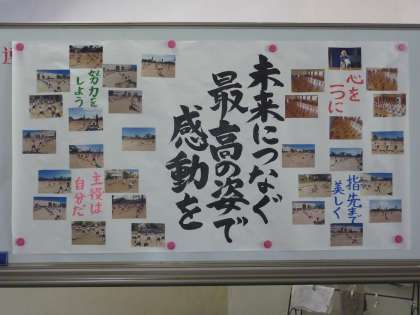 未来につなぐ
最高の姿で
感動を
心を
一つに
指先まで
美しく
努力を
しよう
主役は
自分だ